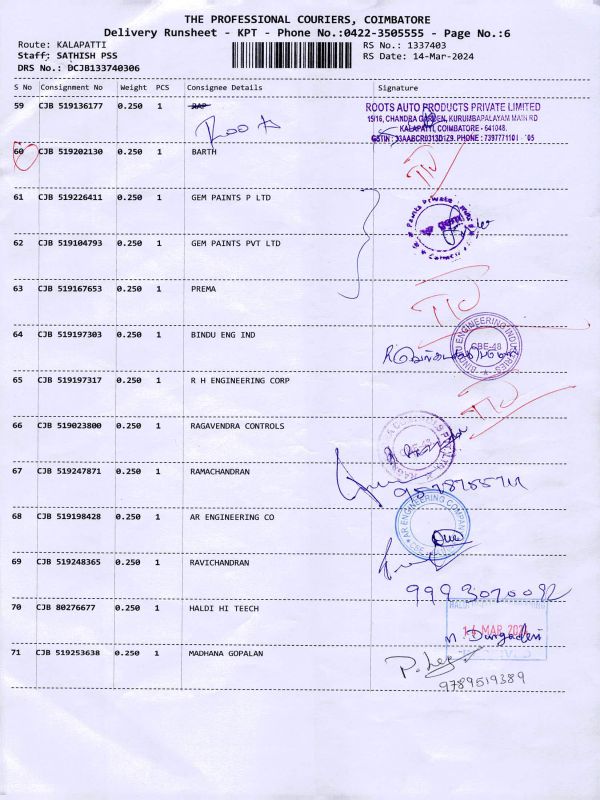 THE PROFESSIONAL COURIERS, COIMBATORE
Delivery Runsheet - KPT - Phone No.:0422-3505555 - Page No.:6
Route: KALAPATTI RS No.: 1337403
Staff: SATHISH PSS RS Date: 14-Mar-2024
DRS No.: DCJB133740306
S No Consignment No Weight PCS Consignee Details Signature
59 CJB 519136177 0.250 1 RAP
Roots
ROOTS AUTO PRODUCTS PRIVATE LIMITED
15/16, CHANDRA GARDEN, KURUMBAPALAYAM MAIN RD
KALAPATTI, COIMBATORE - 641048.
GSTIN : 33AABCR0313D1Z9, PHONE : 7397771101 - '05
60 CJB 519202130 0.250 1 BARTH
61 CJB 519226411 0.250 1 GEM PAINTS P LTD
62 CJB 519104793 0.250 1 GEM PAINTS PVT LTD
63 CJB 519167653 0.250 1 PREMA
64 CJB 519197303 0.250 1 BINDU ENG IND
BINDHU ENGINEERING INDUSTRIES
CBE-48
65 CJB 519197317 0.250 1 R H ENGINEERING CORP
66 CJB 519023800 0.250 1 RAGAVENDRA CONTROLS
67 CJB 519247871 0.250 1 RAMACHANDRAN
68 CJB 519198428 0.250 1 AR ENGINEERING CO
AR ENGINEERING COMPANY
69 CJB 519248365 0.250 1 RAVICHANDRAN
70 CJB 80276677 0.250 1 HALDI HI TEECH
14 MAR 2024
n Durgadevi
71 CJB 519253638 0.250 1 MADHANA GOPALAN
9789519389